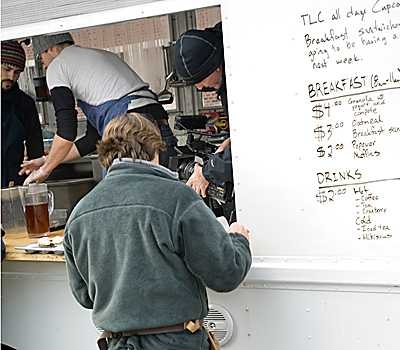 TLC all day. Cupca
Breakfast sandwiches
going to be having a
next week.
BREAKFAST
$4.00 Granola w/
yogurt and
compote
$3.00 Oatmeal
Breakfast san
$2.00 Popover
Muffins
DRINKS
$2.00 Hot
- Coffee
- Tea
Cold
- Iced tea
- Hibiscus